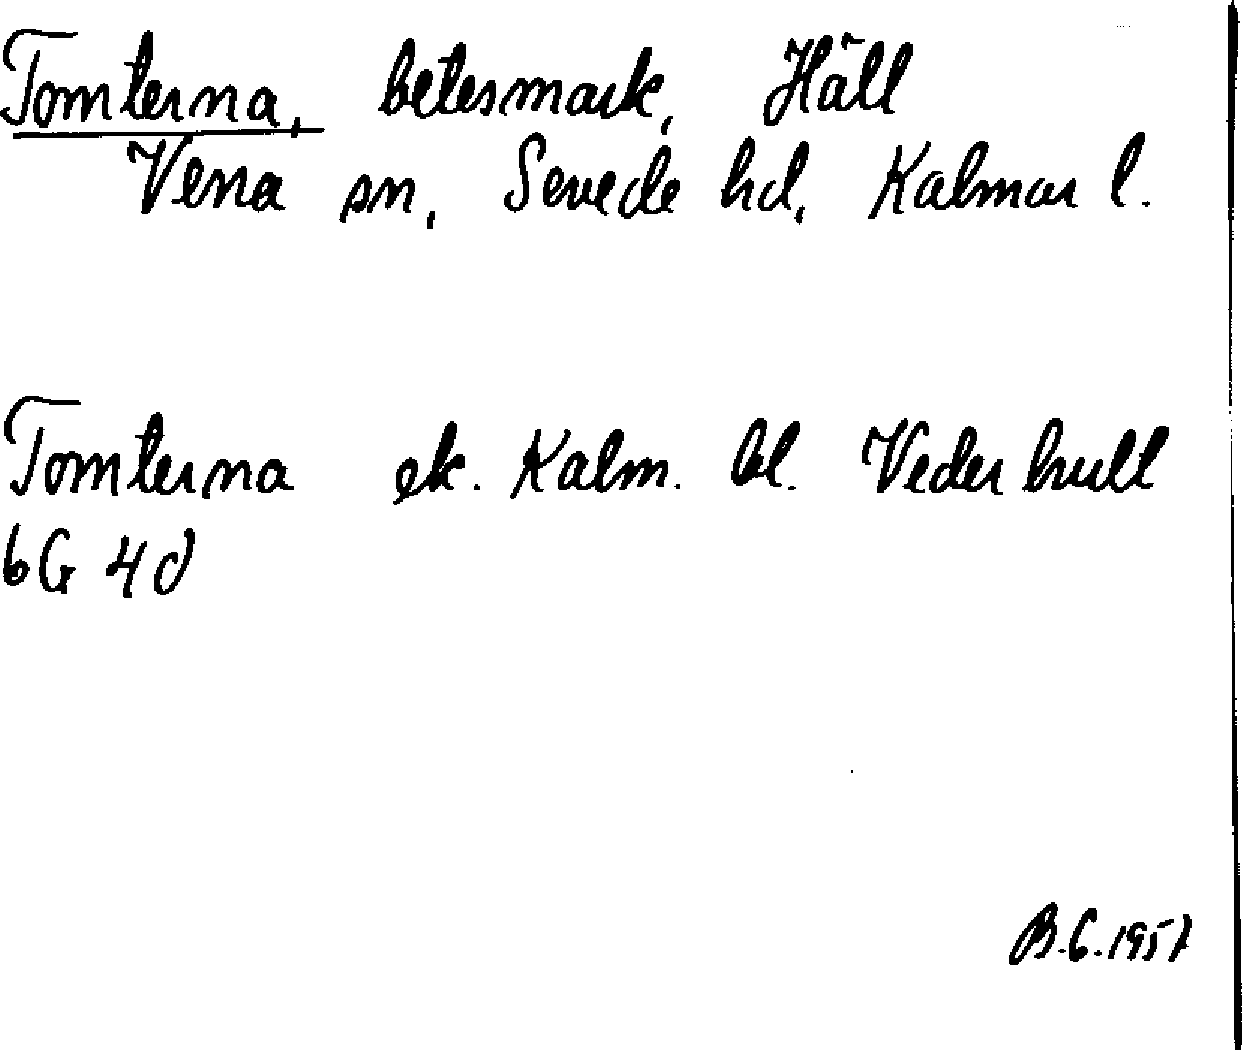 Tomterna, betesmark, Häll
Vena sn, Sevede hd, Kalmar l.
Tomterna ek. Kalm. bl. Vederhult
6G 4d
B.G. 1957